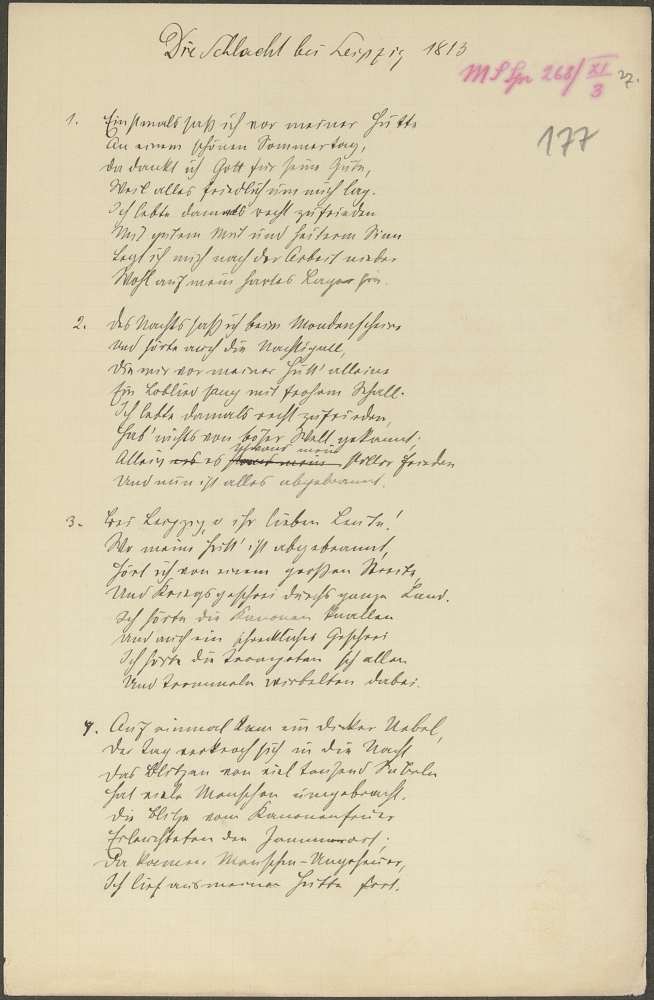 Die Schlacht bei Leipzig 1813
XI
3
27.
177
1. Einstmals saß ich vor meiner Hütte
An einem schönen Sommertag,
Da dankt ich Gott für seine Güte,
Weil alles friedlich um mich lag.
Ich lebte damals recht zufrieden
Mit gutem Mut und heiterm Sinn
Legt ich mich nach der Arbeit nieder
Wohl auf mein hartes Lager hin.
2. Des Nachts saß ich beim Mondenscheine
Und hörte auch die Nachtigall,
Die mir vor meiner Hütt' alleine
Ein Loblied sang mit frohem Schall.
Ich lebte damals recht zufrieden,
Hab' nichts von böser Welt gekannt.
schwand mein
Allein es stiller Frieden
Und nun ist alles abgebrannt.
3. Bei Leipzig, o ihr lieben Leute!
Wo meine Hütt' ist abgebrannt,
Hört ich von einem großen Streite
Und Kriegsgeschrei durchs ganze Land.
Ich hörte die Kanonen knallen
Und auch ein schreckliches Geschrei
Ich hörte die Trompeten schallen
Und Trommeln wirbelten dabei.
4. Auf einmal kam ein dicker Nebel,
Der Tag verkroch sich in die Nacht
Das Blitzen von viel tausend Säbeln
Hat viele Menschen umgebracht.
Die Blitze vom Kanonenfeuer
Erleuchteten den Jammerort;
Da kamen Menschen-Ungeheuer,
Ich lief aus meiner Hütte fort.